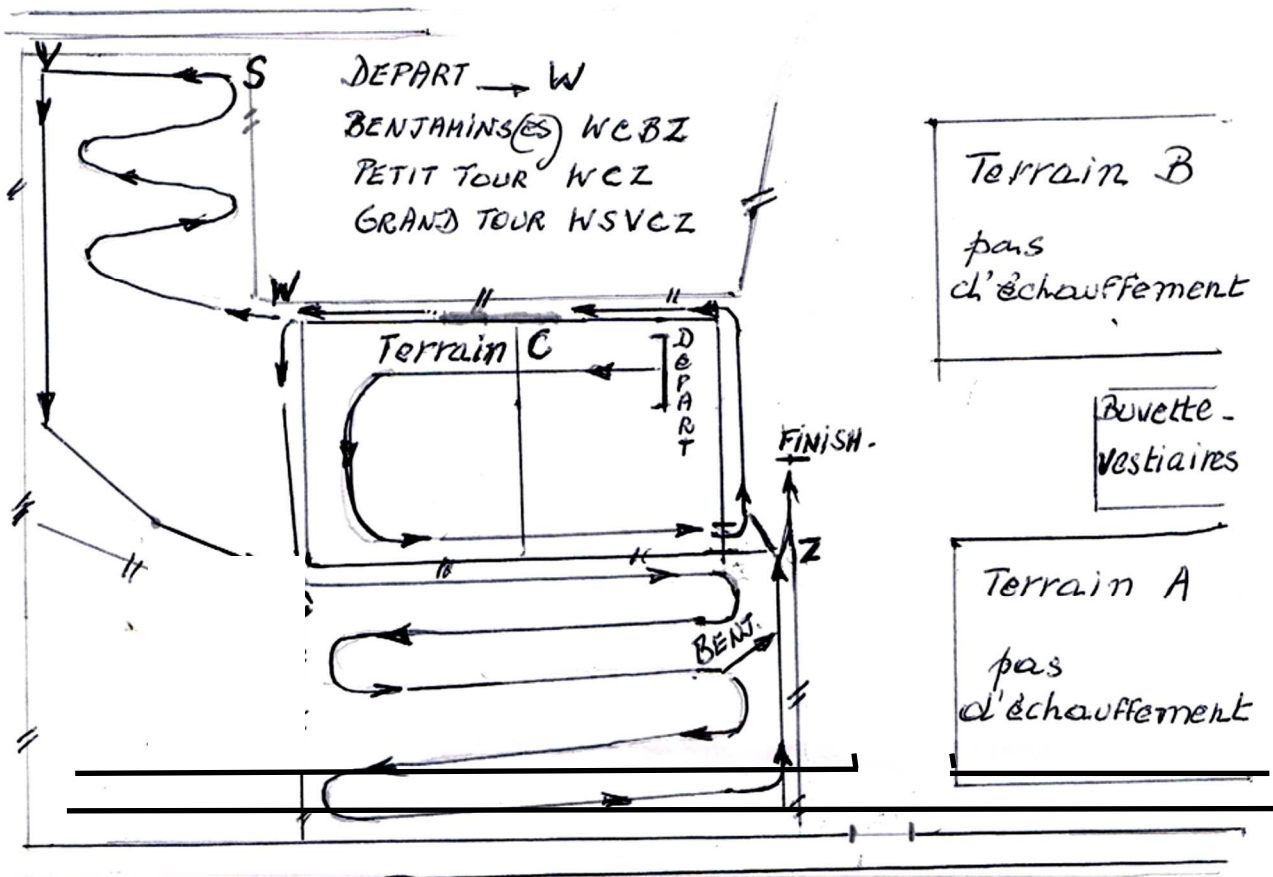 V
S
DEPART → W
BENJAMINS(ES) WCBZ
PETIT TOUR WCZ
GRAND TOUR WSVCZ
Terrain B
pas
d'échauffement
W
Terrain C
DEPART
Buvette-
vestiaires
FINISH.
Z
Terrain A
pas
d'échauffement
BENJ.